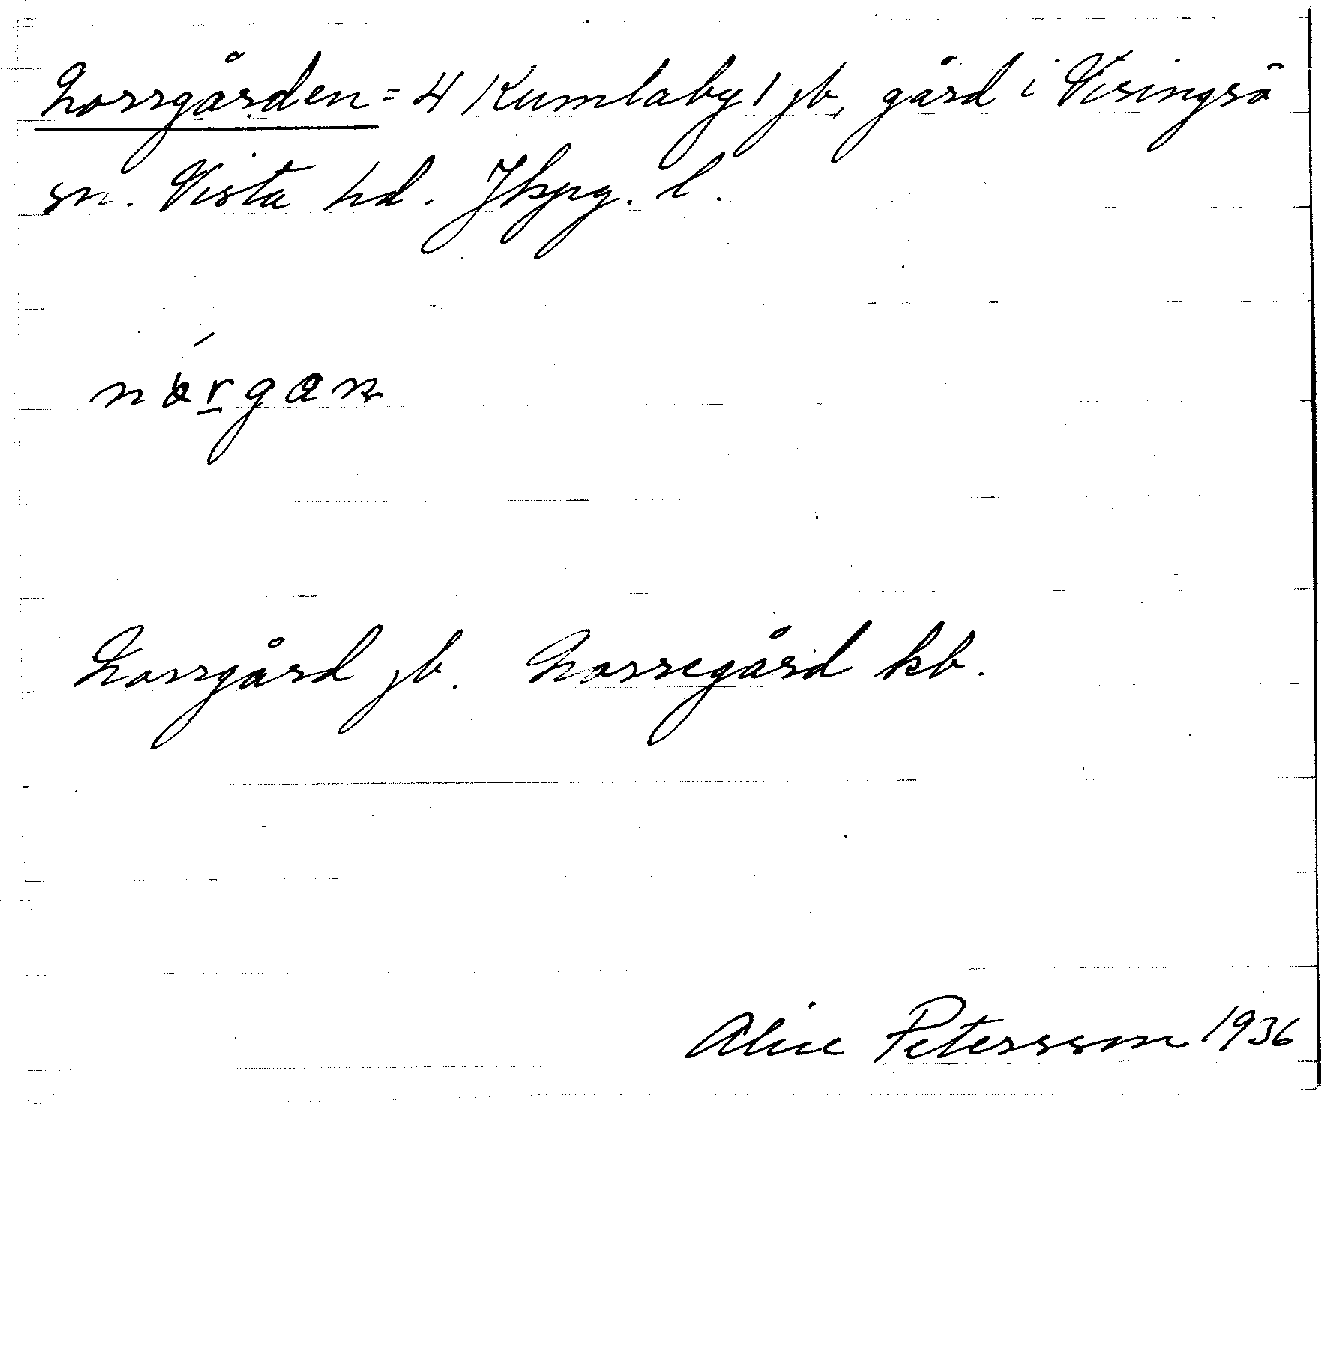 Norrgården = 4 Kumlaby 1 jb, gård i Visingsö
sn. Vista hd. Jkpg. l.
nórgan
Norrgård jb. Norregård kb.
Alice Petersson 1936